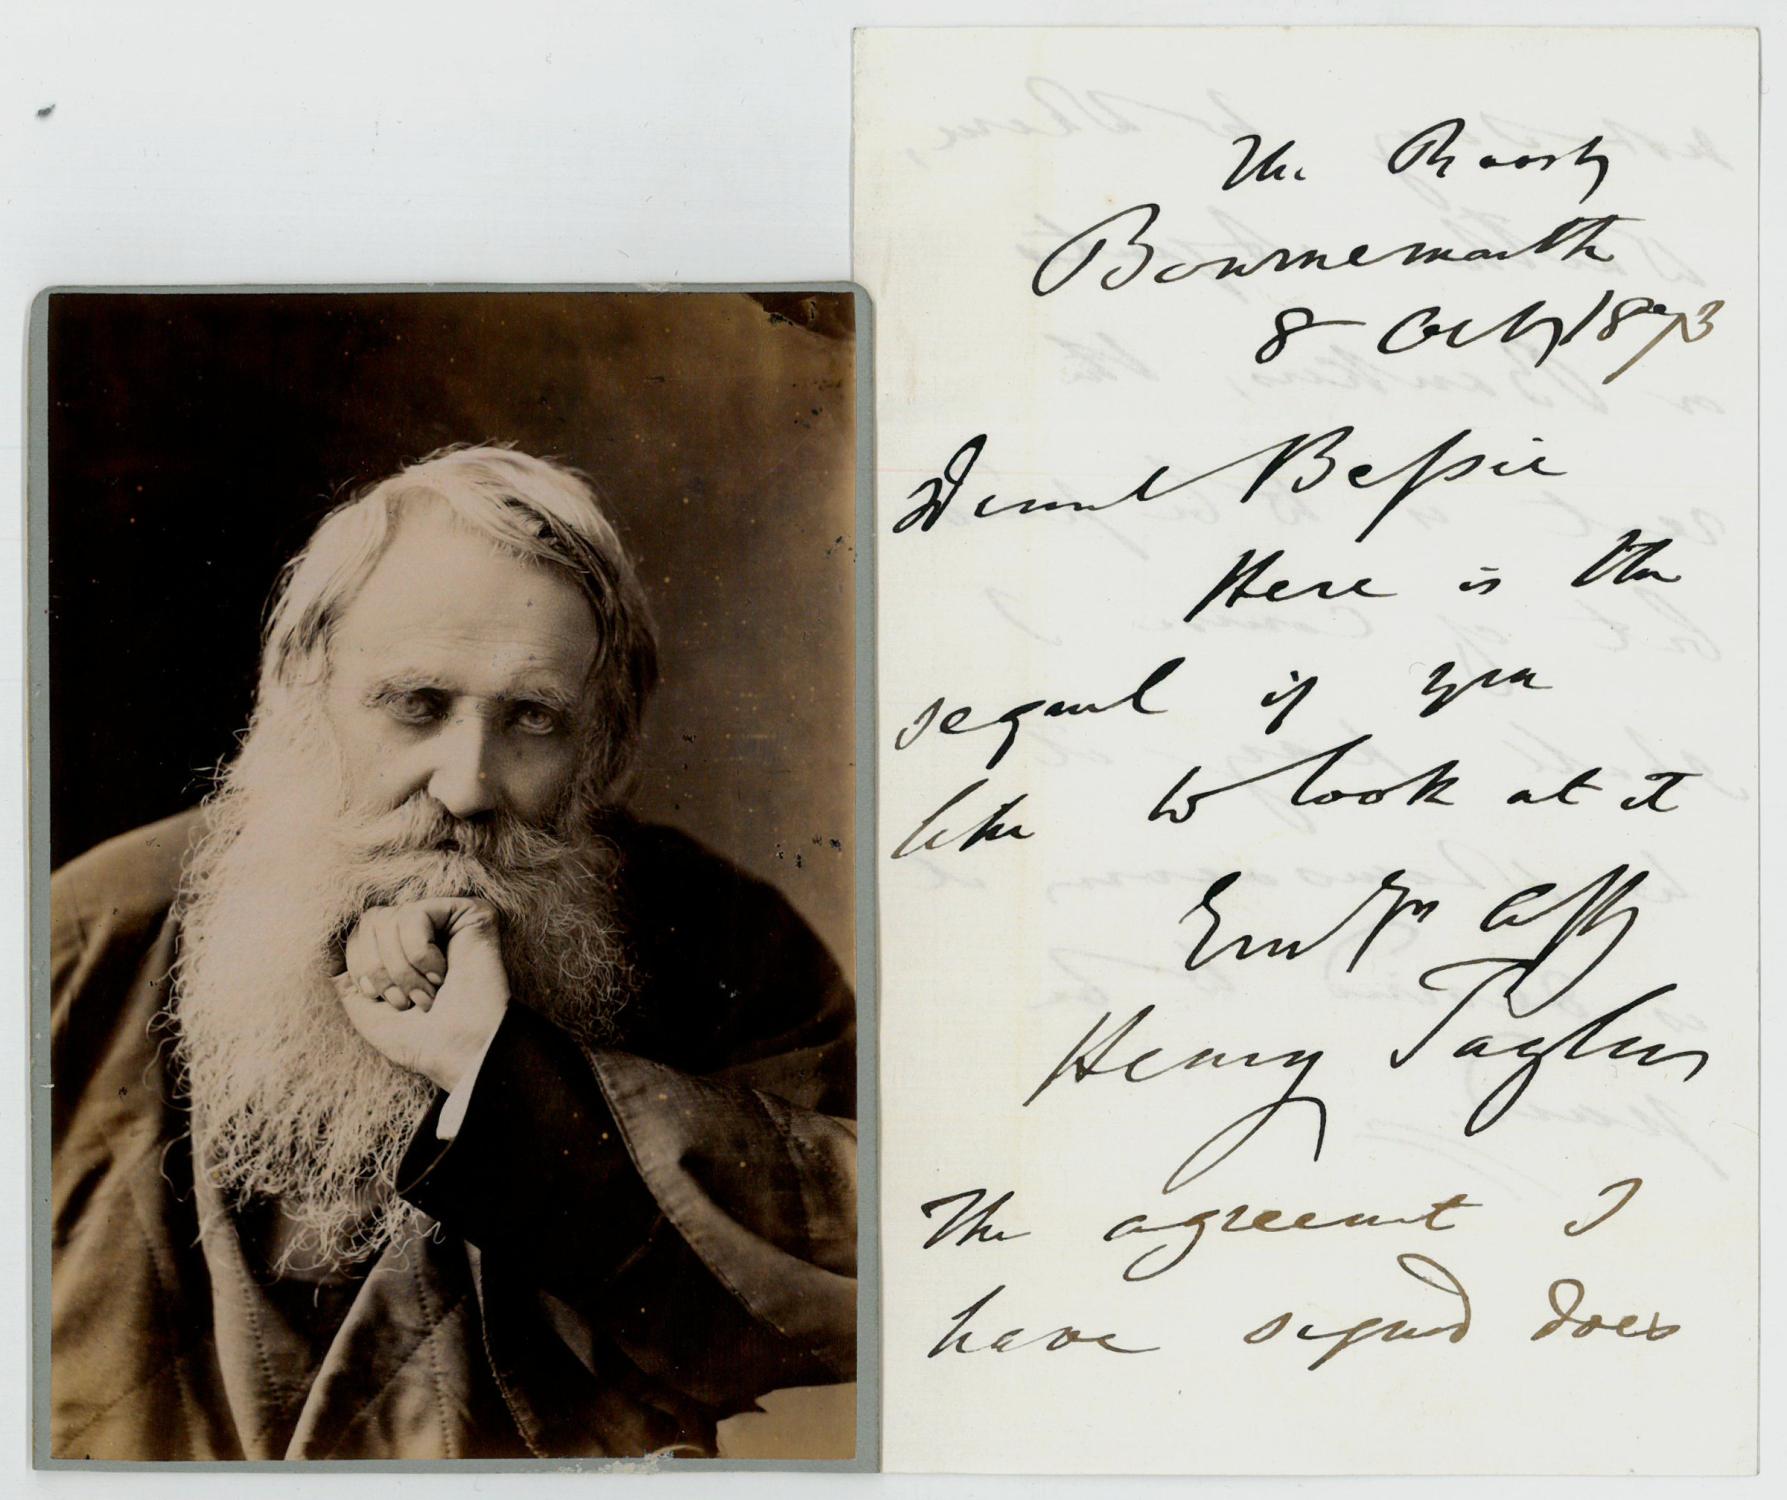 The Roost
Bournemouth
8 Octr 1873
Dearest Bessie
Here is the
sequel if you
like to look at it
Ever yrs affly
Henry Taylor
The agreemt I
have signed does